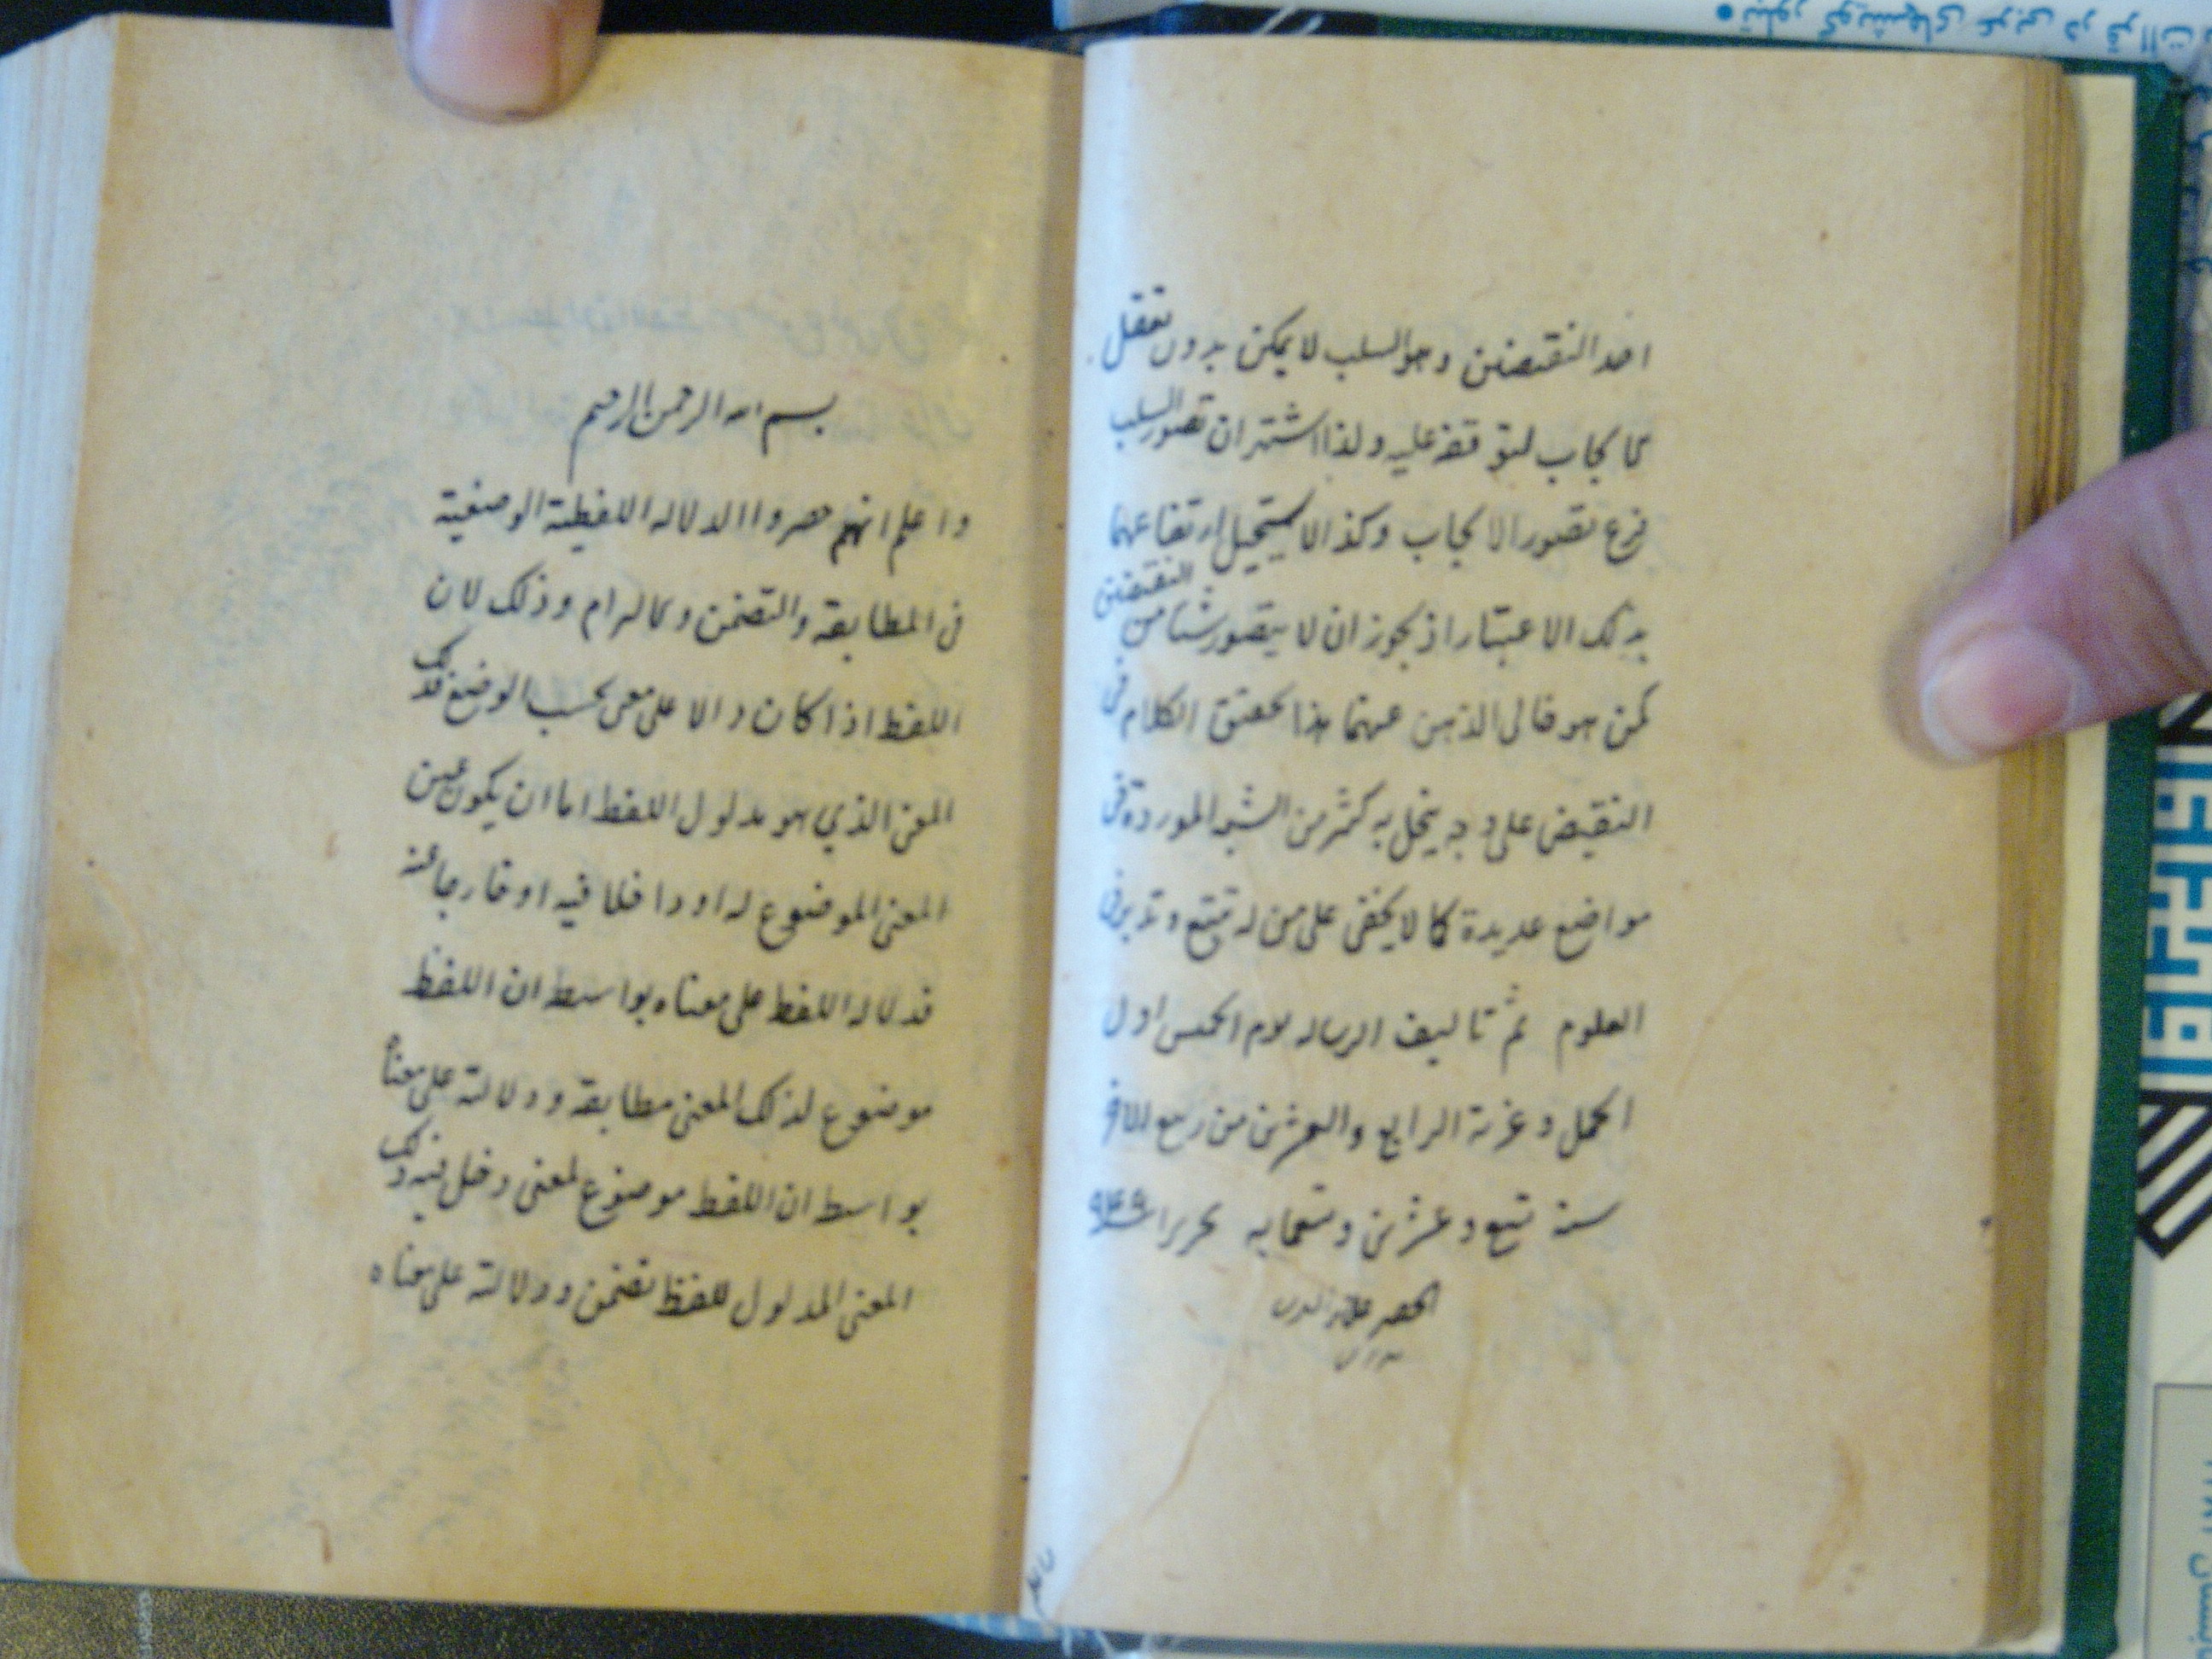 احد النقيضين وهو السلب لا يمكن بدون تعقل
كايجاب لتوقفه عليه ولذا اشتهر ان تصور السلب
فرع تصور الايجاب وكذا لا يستحيل ارتفاعهما
بذلك الاعتبار اذ يجوز ان لا يتصور شيئا من النقيضين
كمن هو خالى الذهن عنهما هذا تحقيق الكلام فى
النقيض على وجه ينحل به كثير من الشبه الموردة فى
مواضع عديدة كما لا يخفى على من له تتبع وتدبر فى
العلوم تم تاليف الرساله يوم الخميس اول
الحمل وغرة الرابع والعشرين من ربيع الاخر
سنه تسع وعشرين وتسعمايه تحريرا
بسم الله الرحمن الرحيم
واعلم انهم حصروا الدلاله اللفظية الوضعية
فى المطابقه والتضمن وكالتزام وذلك لان
اللفظ اذا كان دالا على معنى بحسب الوضع فذلك
المعنى الذي هو مدلول اللفظ اما ان يكون عين
المعنى الموضوع له او داخلا فيه او خارجا عنه
فدلاله اللفظ على معناه بواسطه ان اللفظ
موضوع لذلك المعنى مطابقه ودلالته على معناه
بواسطه ان اللفظ موضوع لمعنى دخل فيه ذلك
المعنى المدلول للفظ تضمن ودلالته على معناه